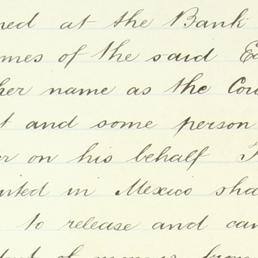 ned at the Bank
mes of the said
her name as the Cou
t and some person
r on his behalf
ited in Mexico sha
to release and can